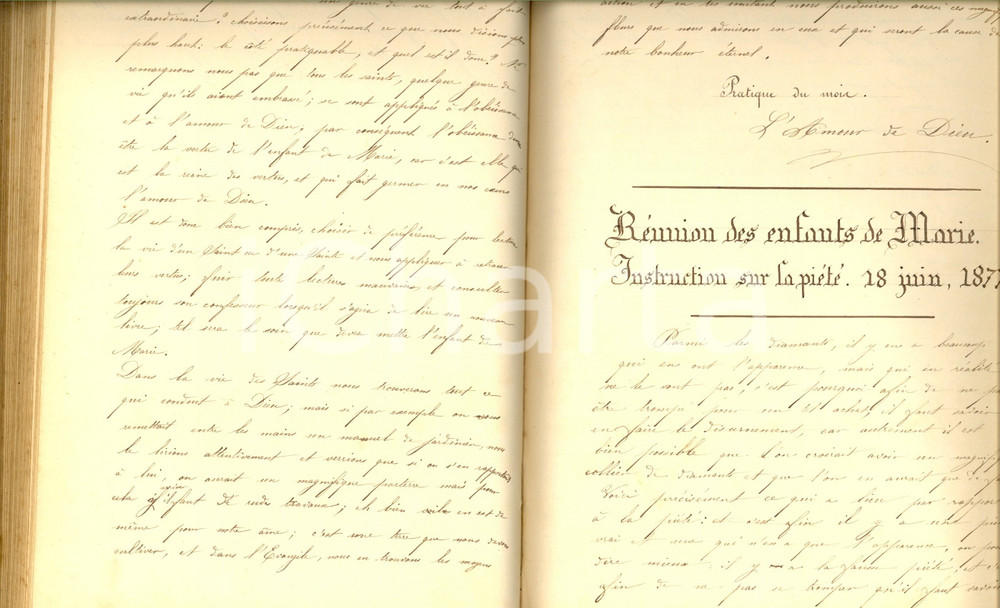 un genre de vie tout à fait
extraordinaire ? choisissons précisément ce que nous disions plus
plus haut : le côté pratiquable, et quel est-il donc ? Ne
remarquons nous pas que tous les saints, quelque genre de
vie qu'ils aient embrassé ; se sont appliqués à l'obéissance
et à l'amour de Dieu ; par conséquent l'obéissance devra
être la vertu de l'enfant de Marie, car c'est elle qui
est la reine des vertus, et qui fait germer en nos cœurs
l'amour de Dieu.
Il est donc bien compris, choisir de préférence pour lecture
la vie d'un Saint ou d'une Sainte et nous appliquer à retracer
leurs vertus ; fuir toute lectures mauvaises et consulter
toujours son confesseur lorsqu'il s'agira de lire un nouveau
livre ; tel sera le soin que devra mettre l'enfant de
Marie.
Dans la vie des Saints nous trouverons tout ce
qui conduit à Dieu ; mais si par exemple on nous
remettait entre les mains un manuel de jardinier, nous
le lirions attentivement et verrions que si on s'en rapportait
à lui, on aurait un magnifique parterre mais pour
cela qu'il faut de rudes travaux ; eh bien voilà en est de
même pour notre âme ; c'est une terre que nous devons
cultiver, et dans l'Evangile, nous en trouvons les moyens
action et en les imitant nous produirons aussi ces magnif
fleurs que nous admirons en eux et qui seront la cause de
notre bonheur éternel.
Pratique du mois.
L'Amour de Dieu.
Réunion des enfants de Marie.
Instruction sur la piété. 18 juin, 1877
Parmi les diamants, il y en a beaucoup
qui en ont l'apparence, mais qui en réalité
ne le sont pas, c'est pourquoi afin de ne pas
être trompé pour un tel achat, il faut savoir
en faire le discernement, car autrement il est
bien possible que l'on croirait avoir un magnifi
collier de diamants et que l'on en aurait que de f
Voici précisément ce qui a lieu par rapport
à la piété : et c'est afin il y a une piété
vrai et une qui n'en a que l'apparence, on pour
dire mieux il y en a la fausse piété ; et c'
afin de ne pas se tromper qu'il faut savoir